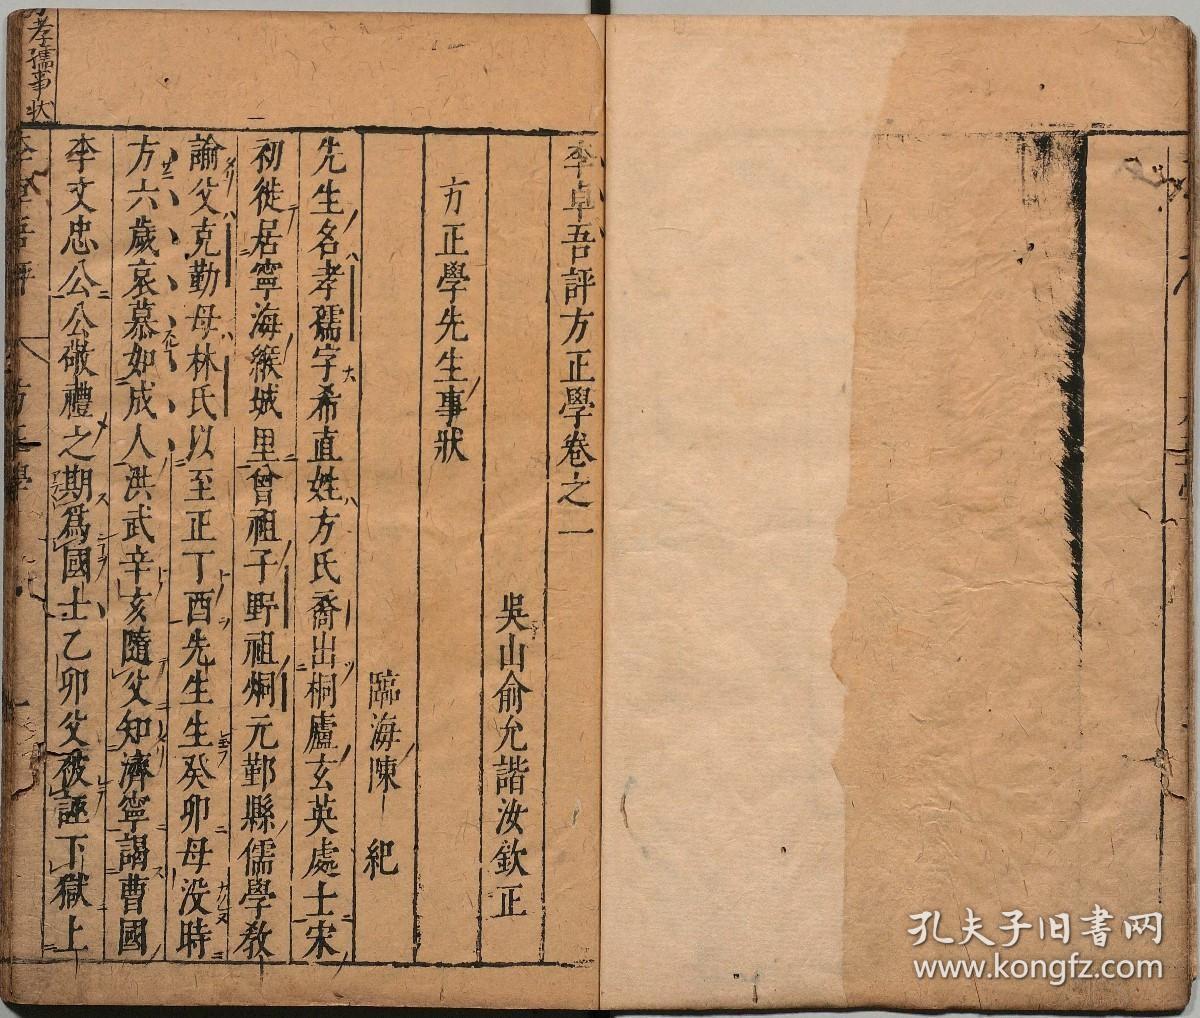 李卓吾評方正學卷之一
吳山俞允諧汝欽正
方正學先生事狀
臨海陳紀
先生名孝孺字希直姓方氏裔出桐廬玄英處士宋
初徙居寧海緱城里曾祖子野祖炯元鄞縣儒學教
諭父克勤母林氏以至正丁酉先生生癸卯母没時
方六歲哀慕如成人洪武辛亥隨父知濟寧謁曹國
李文忠公公敬禮之期爲國士乙卯父被誣下獄上
孝孺事狀
孔夫子旧书网
www.kongfz.com